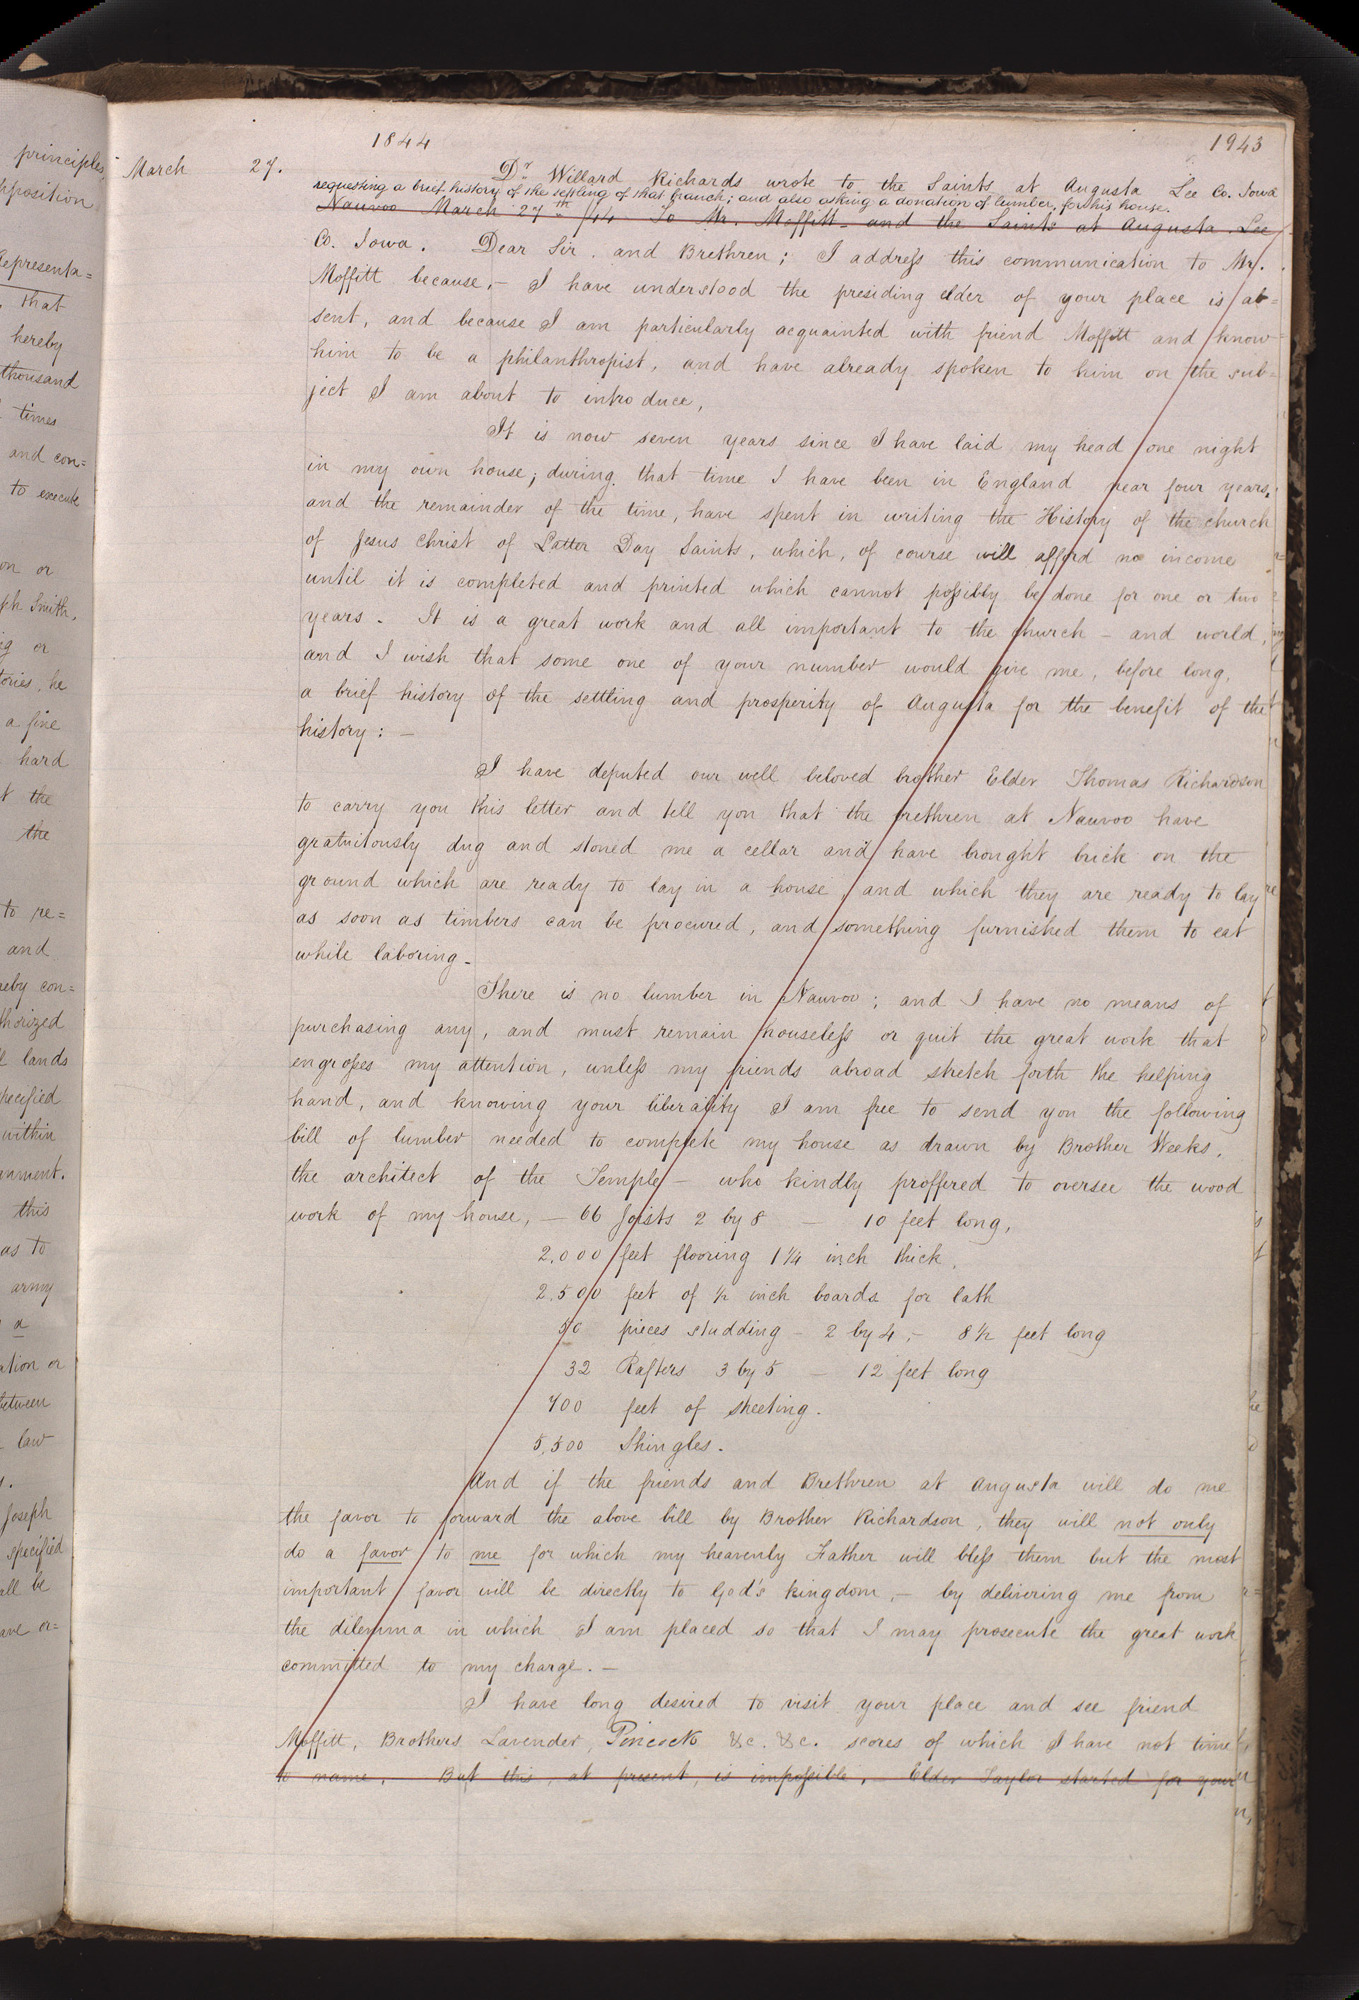 principles,
pposition
Representa=
that
hereby
thousand
times
and con=
to execute
on or
ph Smith,
or
tories, he
a fine
hard
the
the
to re=
and
reby con=
thorized
lands
pecified
within
rnment.
this
as to
army
a
ation or
between
law
Joseph
specified
all be
ave or=
1844
1943
March 27. Dr. Willard Richards wrote to the Saints at Augusta Lee Co. Iowa
requesting a brief history of the settling of that branch; and also asking a donation of lumber, for his house.
Nauvoo March 27th /44 To Mr. Moffitt – and the Saints at Augusta Lee
Co. Iowa. Dear Sir. and Brethren; I address this communication to Mr.
Moffitt because,– I have understood the presiding elder of your place is ab=
sent, and because I am particularly acquainted with friend Moffitt and know
him to be a philanthropist, and have already spoken to him on the sub=
ject I am about to introduce,
It is now seven years since I have laid my head one night
in my own house; during that time I have been in England near four years,
and the remainder of the time, have spent in writing the History of the church
of Jesus Christ of Latter Day Saints, which, of course will afford no income
until it is completed and printed which cannot possibly be done for one or two
years. It is a great work and all important to the church – and world,
and I wish that some one of your number would give me, before long,
a brief history of the settling and prosperity of Augusta for the benefit of the
history: –
I have deputed our well beloved brother Elder Thomas Richardson
to carry you this letter and tell you that the brethren at Nauvoo have
gratuitously dug and stoned me a cellar and have brought brick on the
ground which are ready to lay in a house, and which they are ready to lay
as soon as timbers can be procured, and something furnished them to eat
while laboring.
There is no lumber in Nauvoo; and I have no means of
purchasing any, and must remain houseless or quit the great work that
engrosses my attention, unless my friends abroad stretch forth the helping
hand, and knowing your liberality I am free to send you the following
bill of lumber needed to complete my house as drawn by Brother Weeks,
the architect of the Temple – who kindly proffered to oversee the wood
work of my house, – 66 Joists 2 by 8 – 10 feet long,
2.000 feet flooring 1¼ inch thick,
2.500 feet of ½ inch boards for lath
50 pieces studding – 2 by 4,– 8½ feet long
32 Rafters 3 by 5 – 12 feet long
700 feet of sheeting.
5,500 Shingles.
And if the friends and Brethren at Augusta will do me
the favor to forward the above bill by Brother Richardson, they will not only
do a favor to me for which my heavenly Father will bless them but the most
important favor will be directly to God's kingdom,– by delivering me from
the dilemma in which I am placed so that I may prosecute the great work
committed to my charge.–
I have long desired to visit your place and see friend
Moffitt, Brothers Lavender, Pincock &c. &c. scores of which I have not time
to name. But this, at present, is impossible,– Elder Taylor started for your